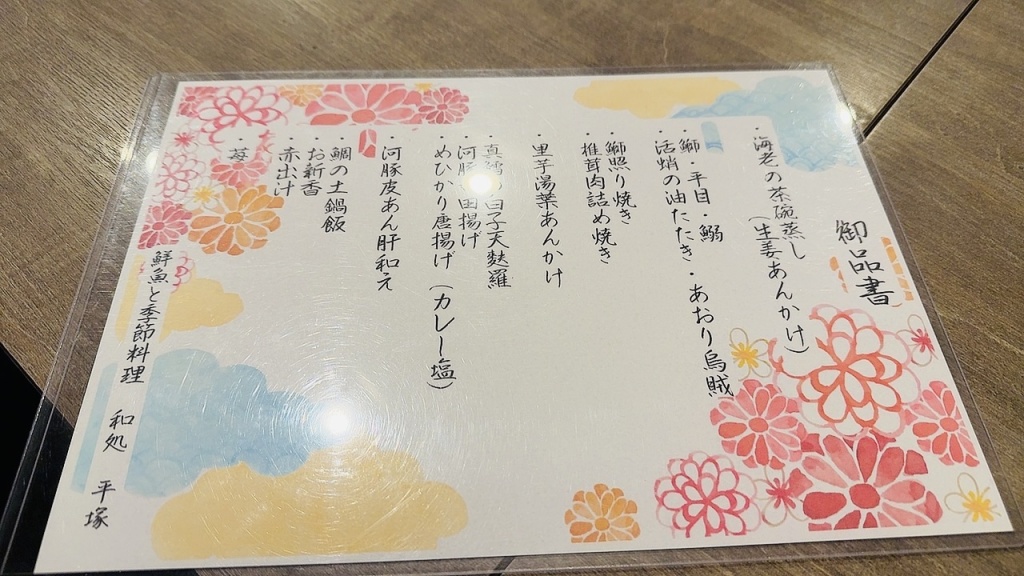 御品書
・海老の茶碗蒸し
(生姜あんかけ)
・鰤・平目・鰯・あおり烏賊
・活蛸の油たたき
・鰤照り焼き
・椎茸肉詰め焼き
・里芋湯葉あんかけ
・真鱈の白子天麩羅
・河豚の田揚げ
・めひかり唐揚げ(カレー塩)
・河豚皮あん肝和え
・鯛の土鍋飯
・お新香
・赤出汁
・苺
鮮魚と季節料理 和処 平塚